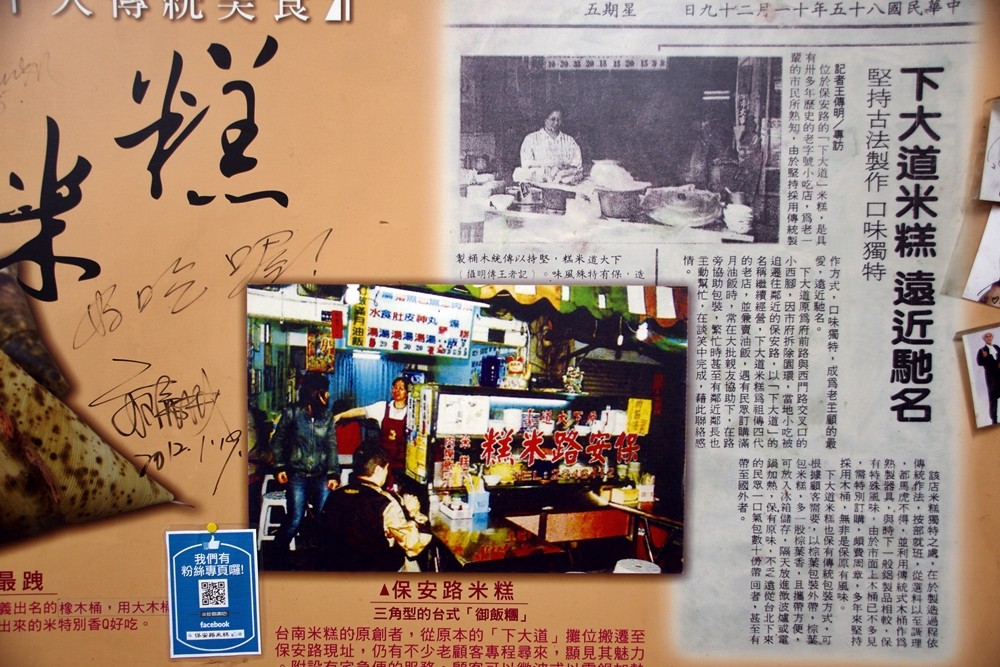 大傳統美食
米糕
好吃喔!
2012.1.19.
最跩
義出名的橡木桶，用大木桶
出來的米特別香Q好吃。
我們有
粉絲專頁囉!
facebook
保安路米糕
▲保安路米糕
三角型的台式「御飯糰」
台南米糕的原創者，從原本的「下大道」攤位搬遷至
保安路現址，仍有不少老顧客專程尋來，顯見其魅力
滿月油飯
保安路米糕
中華民國八十五年十一月二十九日 星期五
下大道米糕 遠近馳名
堅持古法製作 口味獨特
記者王傳明／專訪
位於保安路的「下大道」米糕，是具
有卅多年歷史的老字號小吃店，為老一
輩的市民所熟知，由於堅持採用傳統製
作方式，口味獨特，成為老主顧的最
愛，遠近馳名。
下大道原為府前路與西門路交叉口的
小西腳，因市府拆除圓環，當地小吃被
迫遷往鄰近的保安路，以「下大道」的
名稱繼續經營，下大道米糕為祖傳四代
的老店，並兼賣油飯，遇有民眾訂購滿
月油飯時，常在大批親友協助下，在路
旁協助包裝，繁忙時甚至有鄰近鄰長也
主動幫忙，在談笑中完成，藉此聯絡感
情。
該店米糕獨特之處，在於製造過程依
傳統作法，按部就班，從選料以至調理
，都馬虎不得，並利用傳統式木桶作為
熟製器具，與時下一般鋁製品相較，保
有特殊風味，由於市面上木桶已不多見
，需特別訂購，頗費周章，多年來堅持
採用木桶，無非是保原有風味。
下大道米糕也保有傳統包裝方式，可
根據顧客需要，以棕葉包裝外帶，棕葉
包米糕，多一股棕葉香，且攜帶方便，
可放入冰箱儲存，隔天放進微波爐或電
鍋加熱，保有原味，不乏遠從台北下來
的民眾一口氣包數十份帶回者，甚至有
帶至國外者。
下大道米糕，堅持以傳統木桶製
造，保有特殊風味。（記者王傳明攝）